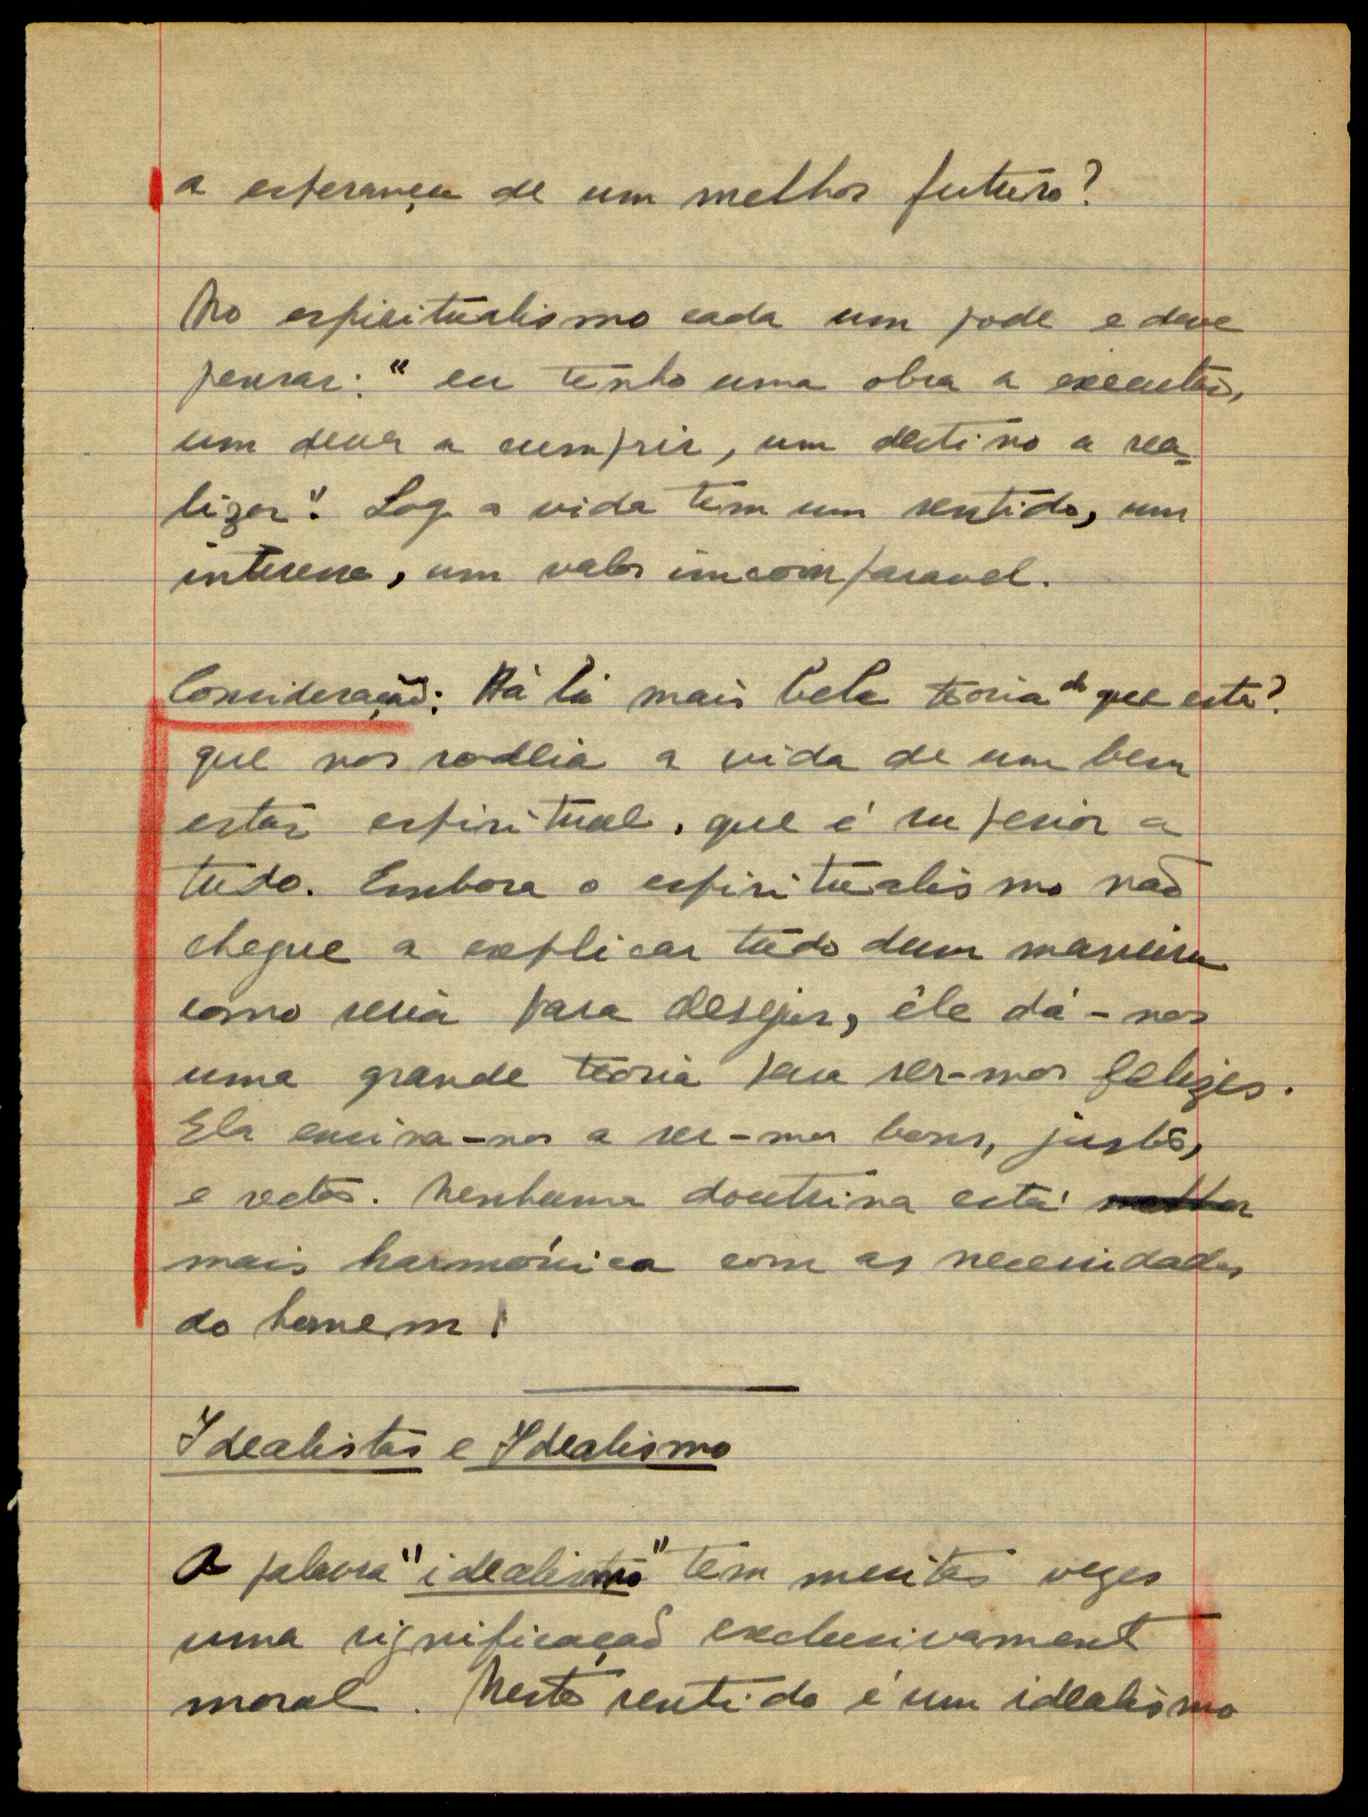 a esperança de um melhor futuro?
No espiritualismo cada um pode e deve
pensar: "eu tenho uma obra a executar,
um dever a cumprir, um destino a rea-
lizar". Logo a vida tem um sentido, um
interesse, um valor imcomparavel.
Consideração: Há lá mais bela teoria do que esta?
que nos rodeia a vida de um bem
estar espiritual, que é superior a
tudo. Embora o espiritualismo não
chegue a explicar tudo dum maneira
como seria para desejar, êle dá-nos
uma grande teoria para ser-mos felizes.
Ela ensina-nos a ser-mos bons, justos,
e rectos. Nenhuma doutrina está
mais harmónica com as necessidades
do homem!
Idealistas e Idealismo
A palavra "idealismo" tem muitas vezes
uma significação exclusivament
moral. Neste sentido é um idealismo